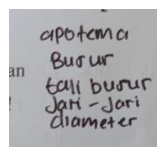 apotema
Busur
an
tali busur
Jari - Jari
diameter